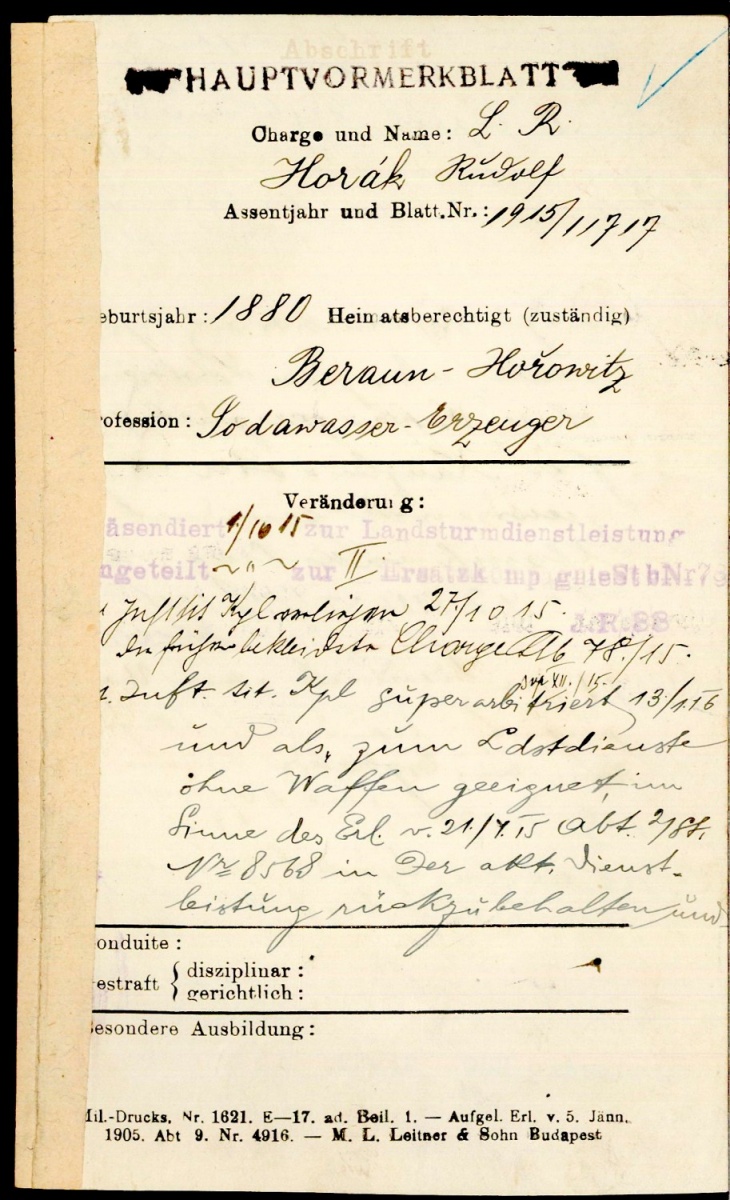 Abschrift
HAUPTVORMERKBLATT
Charge und Name: L. R.
Horák Rudolf
Assentjahr und Blatt.Nr.: 1915/11717
eburtsjahr: 1880 Heimatsberechtigt (zuständig)
Beraun-Hořowitz
rofession: Sodawasser-Erzeuger
Veränderung:
äsendiert 1/10 15 zur Landsturmdienstleistung
ngeteilt ~"~ zur II. Ersatzkompagnie StbNr 79
J.R. 88
Inft tit Kpl 27/10 15.
In früher bekleideter Charge Ab 78./15.
Inft. tit. Kpl superarbitriert 13/1.16
XII./15.
und als „zum Ldstdienste
ohne Waffen geeignet, im
Sinne des Erl. v. 21/7.15 Abt. 2/St.
Nr 8568 in Der akt. Dienst-
leistung rückzubehalten und
onduite:
estraft { disziplinar:
gerichtlich:
esondere Ausbildung:
Mil.-Drucks. Nr. 1621. E—17. ad. Beil. 1. — Aufgel. Erl. v. 5. Jänn.
1905. Abt 9. Nr. 4916. — M. L. Leitner & Sohn Budapest